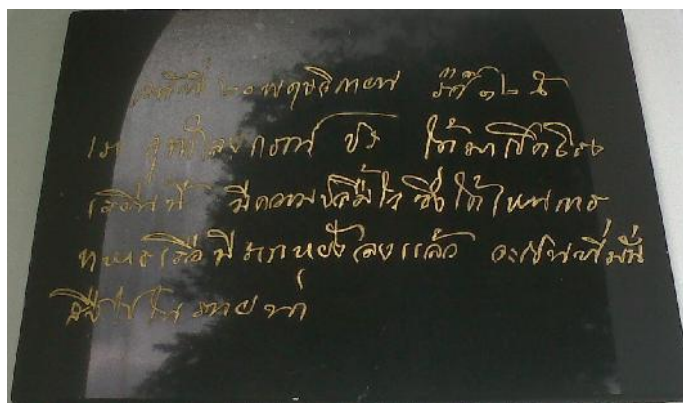 วันที่ ๒๐ พฤศจิกายน รศ๊ ๑๒๕
เรา จุฬาลงกรณ์ ปร ได้มาเปิดโรง
เรียนนี้ มีความปลื้มใจ ซึ่งได้เหนการ
ทหารเรือมีรากหยั่งลงแล้ว จะเปนที่มั่น
สืบไปในภายน่า